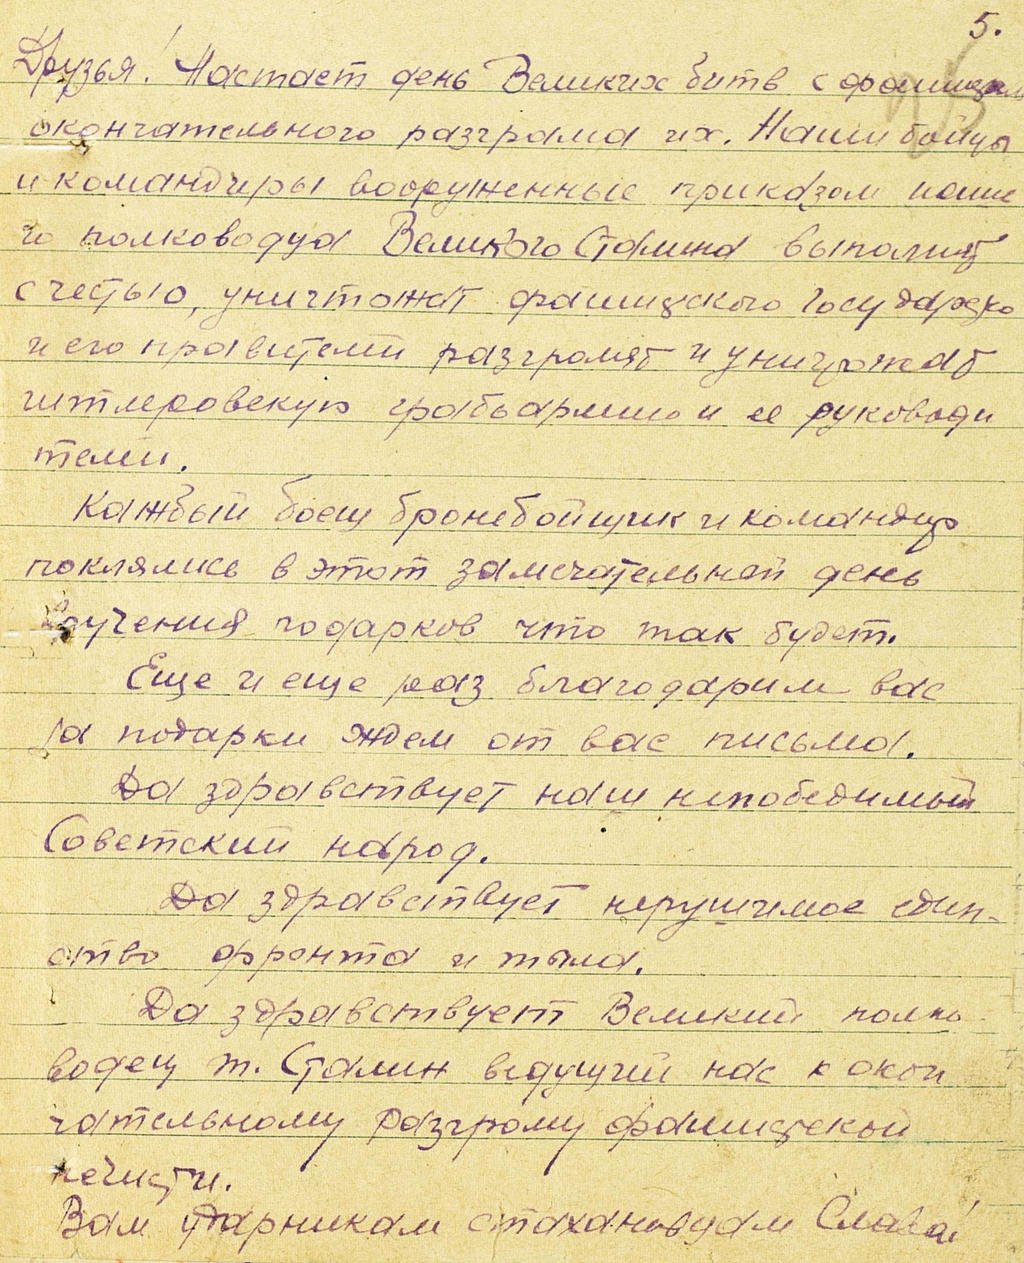 5.
Друзья! Настает день Великих битв с фашизмом
окончательного разграма их. Наши бойцы
и командиры вооруженные приказом наше
го полководца Великого Сталина выполнят
с честью, уничтожат фашизского Государство
и его правителей разгромят и уничтожат
гитлеровскую грабьармию и ее руководи
телей.
Каждый боец бронебойщик и командир
поклялись в этот замечательней день
получения подарков что так будет.
Еще и еще раз благодарим вас
за подарки ждем от вас письма.
Да здравствует наш непобедимый
Советский народ.
Да здравствует нерушимое един-
ство фронта и тыла.
Да здравствует Великий полко-
водец т. Сталин ведущий нас к окон
чательному разгрому фашистской
нечисти.
Вам ударникам стахановцам Слава!